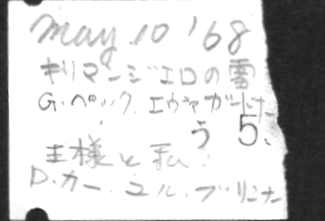 May 10 '68
キリマージエロの雪
G.ペック. エヴァガードナー
う 5、
王様と私
D.カー. ユル.ブリンナー